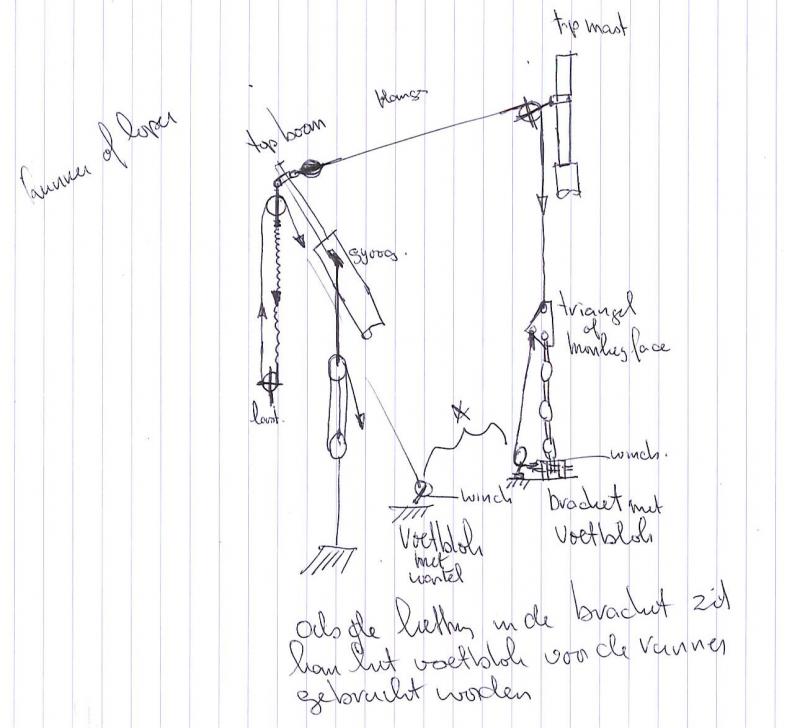 top mast
hang
runner of loper
top boom
gyoog.
triangel
of
monkeyface
last.
winch.
winch
bracket met
voetblok
Voetblok
met
wartel
als de ketting in de bracket zit
kan het voetblok voor de runner
gebracht worden